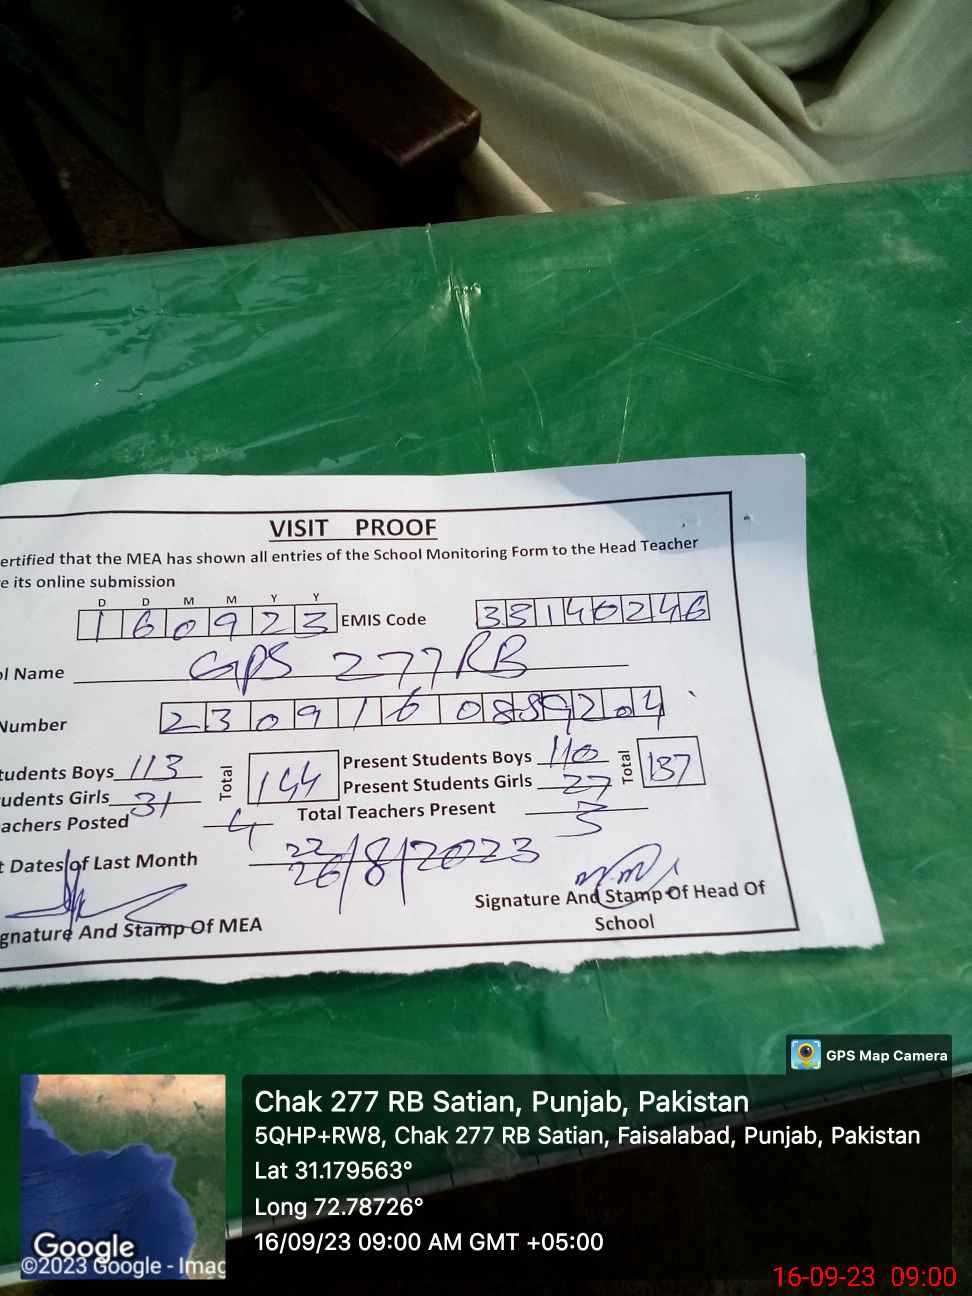 VISIT PROOF
ertified that the MEA has shown all entries of the School Monitoring Form to the Head Teacher
e its online submission
D D M M Y Y
160923 EMIS Code 33140246
ol Name GPS 277 RB
Number 2309160889204
tudents Boys 113 Total 144 Present Students Boys 110 Total 137
udents Girls 31 Present Students Girls 27
achers Posted 4 Total Teachers Present 3
t Dates of Last Month 22/26/8/2023
gnature And Stamp Of MEA
Signature And Stamp Of Head Of
School
GPS Map Camera
Chak 277 RB Satian, Punjab, Pakistan
5QHP+RW8, Chak 277 RB Satian, Faisalabad, Punjab, Pakistan
Lat 31.179563°
Long 72.78726°
16/09/23 09:00 AM GMT +05:00
Google
©2023 Google - Imag
16-09-23 09:00